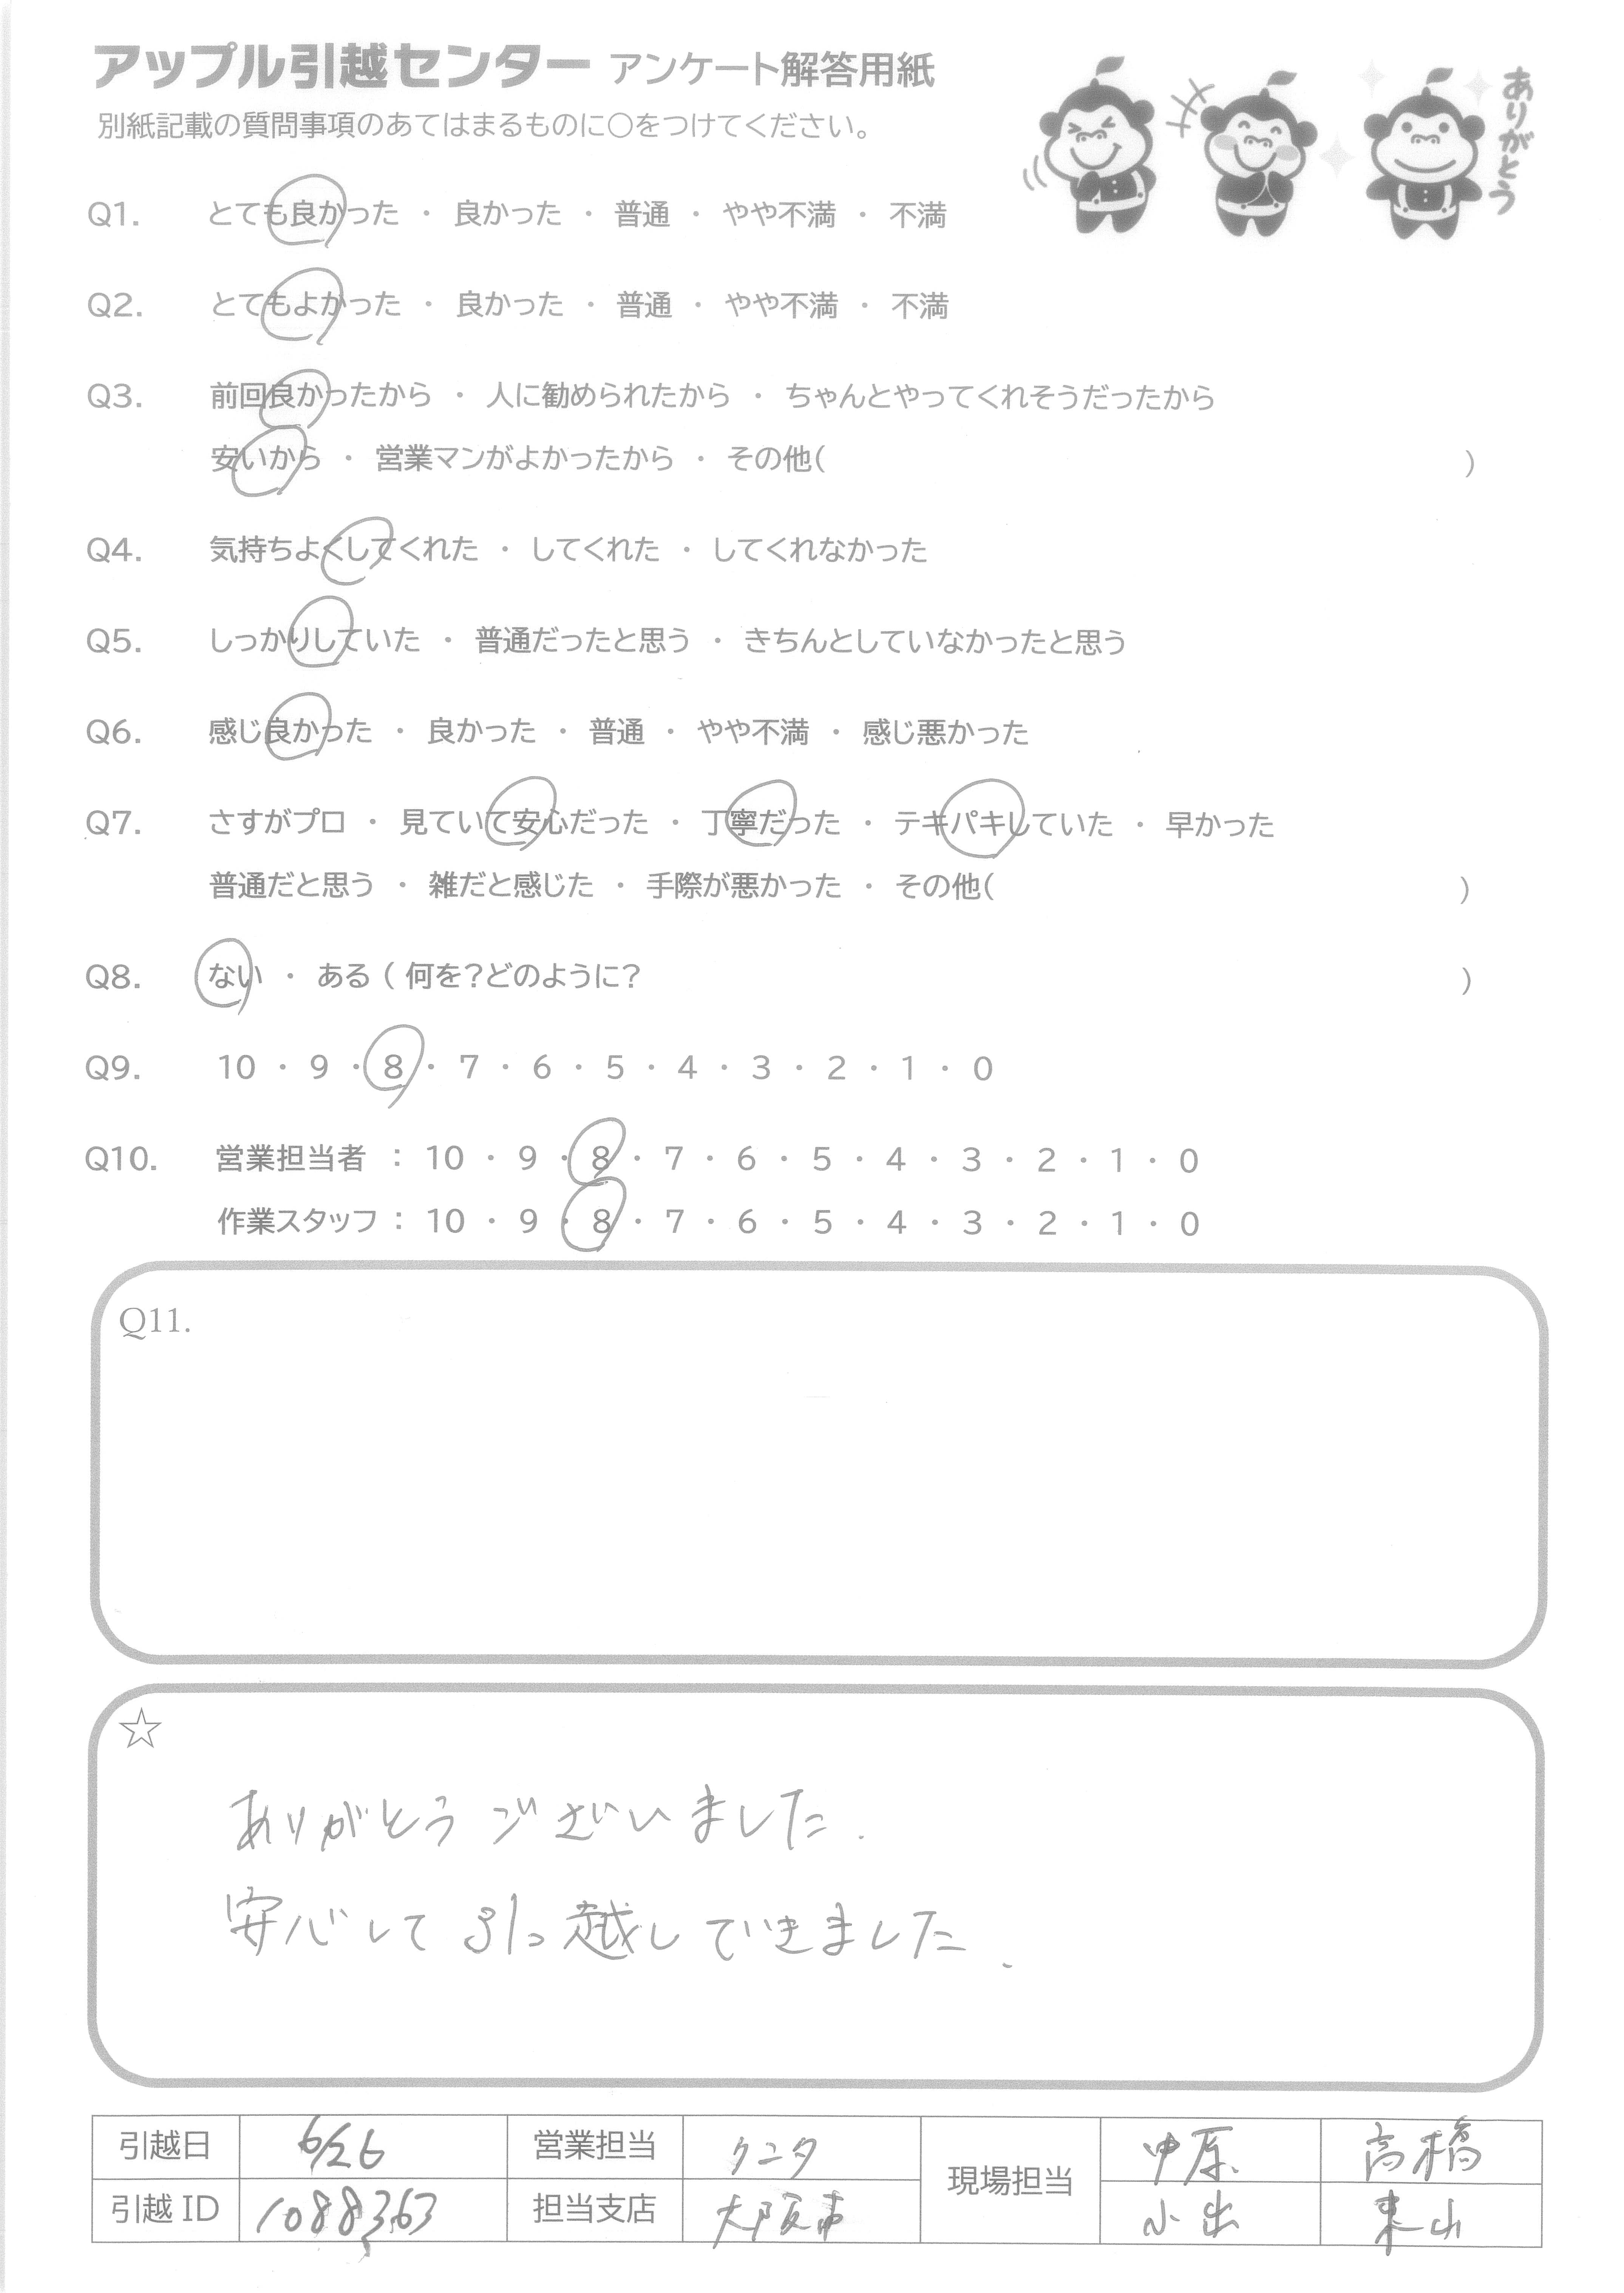 アップル引越センター アンケート解答用紙
別紙記載の質問事項のあてはまるものに○をつけてください。
ありがとう
Q1. とても良かった ・ 良かった ・ 普通 ・ やや不満 ・ 不満
Q2. とてもよかった ・ 良かった ・ 普通 ・ やや不満 ・ 不満
Q3. 前回良かったから ・ 人に勧められたから ・ ちゃんとやってくれそうだったから
安いから ・ 営業マンがよかったから ・ その他( )
Q4. 気持ちよくしてくれた ・ してくれた ・ してくれなかった
Q5. しっかりしていた ・ 普通だったと思う ・ きちんとしていなかったと思う
Q6. 感じ良かった ・ 良かった ・ 普通 ・ やや不満 ・ 感じ悪かった
Q7. さすがプロ ・ 見ていて安心だった ・ 丁寧だった ・ テキパキしていた ・ 早かった
普通だと思う ・ 雑だと感じた ・ 手際が悪かった ・ その他( )
Q8. ない ・ ある ( 何を?どのように? )
Q9. 10 ・ 9 ・ 8 ・ 7 ・ 6 ・ 5 ・ 4 ・ 3 ・ 2 ・ 1 ・ 0
Q10. 営業担当者 : 10 ・ 9 ・ 8 ・ 7 ・ 6 ・ 5 ・ 4 ・ 3 ・ 2 ・ 1 ・ 0
作業スタッフ : 10 ・ 9 ・ 8 ・ 7 ・ 6 ・ 5 ・ 4 ・ 3 ・ 2 ・ 1 ・ 0
Q11.
☆
ありがとうございました.
安心して引っ越しできました.
引越日 6/26 営業担当 クニタ 現場担当 中原 高橋
引越 ID 1088363 担当支店 大阪東 小出 東山